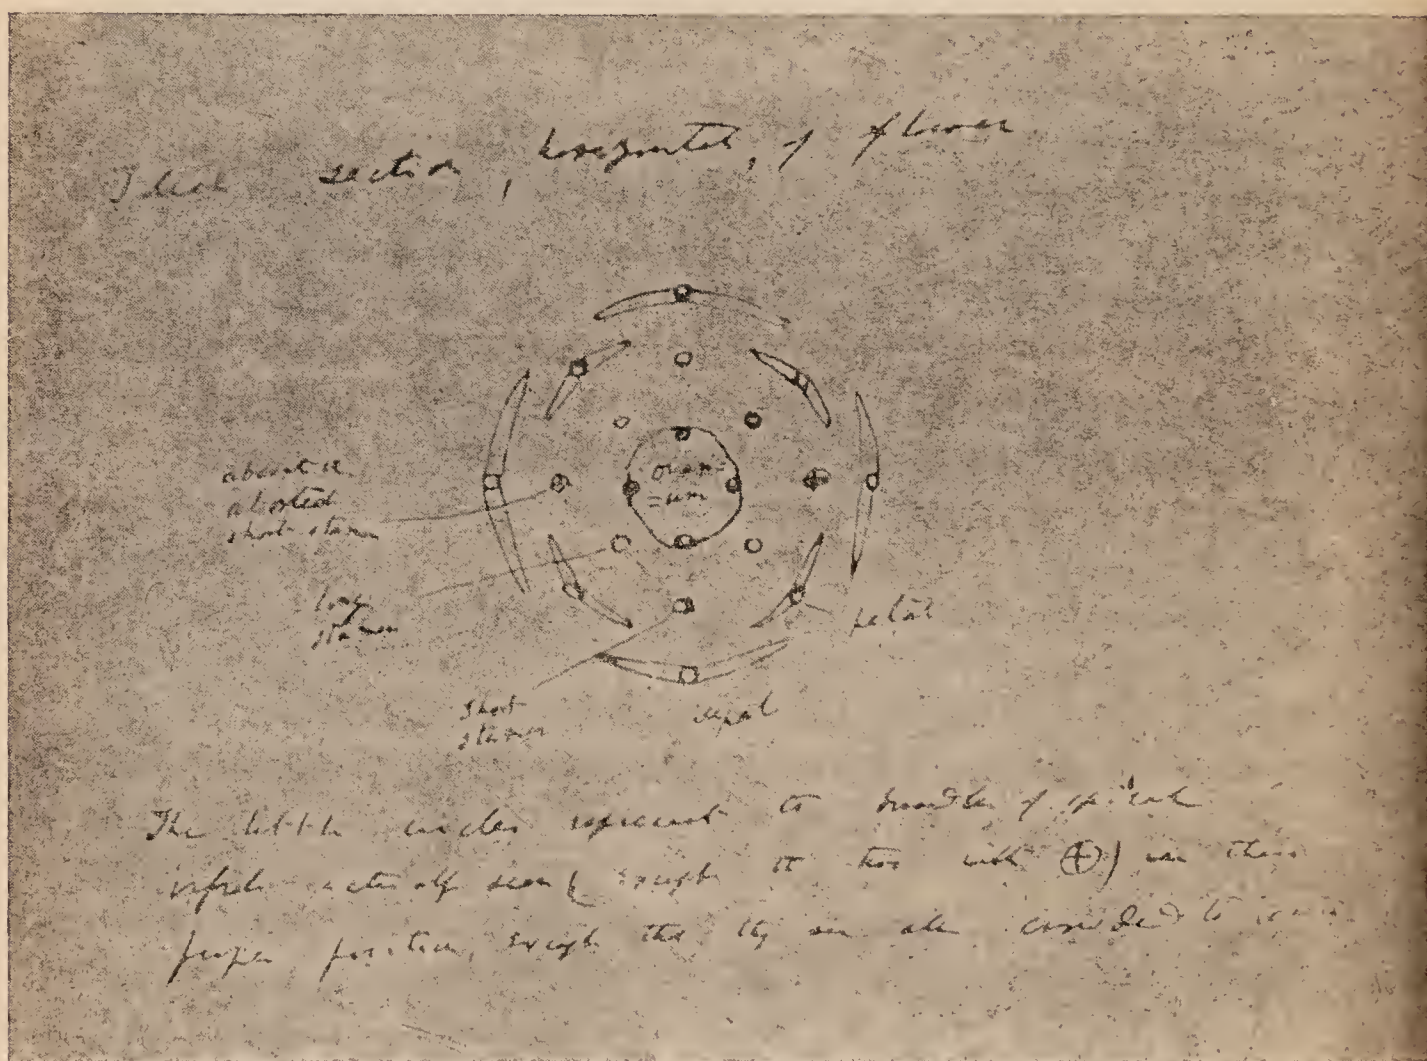 Ideal section, horizontal, of flower
absent or
aborted
short stamen
ovar=
=ium
long
stamen
petal
short
stamen
sepal
The little circles represent the bundles of spiral
vessels actually seen (except the two with ⊕) in their
proper position, except that they are all